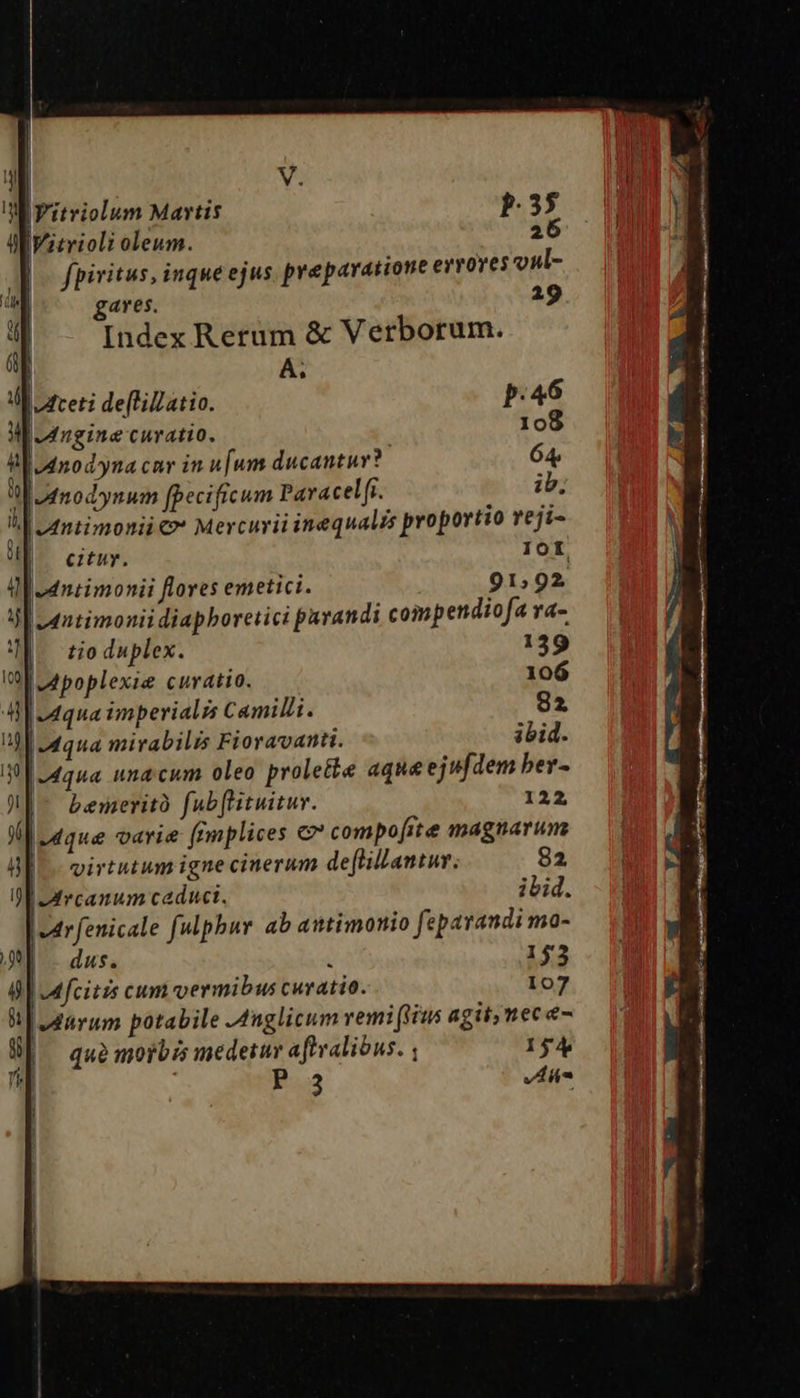 V.
Vitriolum Martis p. 35
Vitrioli oleum. 26
ſpiritus, inque ejus præparatione errores vul-
gares. 29
Index Rerum & Verborum.
A.
Aceti deſtillatio. p. 46
Anginæ curatio. 108
Anodyna cur in uſum ducantur? 64
Anodynum ſpecificum Paracelſi. ib.
Antimonii & Mercurii inæqualis proportio reji-
citur. 101
Antimonii flores emetici. 91, 92
Antimonii diaphoretici parandi compendioſa ra-
tio duplex. 139
Apoplexiæ curatio. 106
Aqua imperialis Camilli. 82
Aqua mirabilis Fioravanti. ibid.
Aqua una cum oleo prolectæ aquæ ejuſdem her-
bæ meritò ſubſtituitur. 122
Aquæ variæ ſimplices & compoſitæ magnarum
virtutum igne cinerum deſtillantur. 82
Arcanum caduci. ibid.
Arſenicale ſulphur ab antimonio ſeparandi mo-
dus. 153
Aſcitis cum vermibus curatio. 107
Aurum potabile Anglicum remiſſius agit, nec æ-
què morbis medetur aſtralibus. 154
P 3 Au-